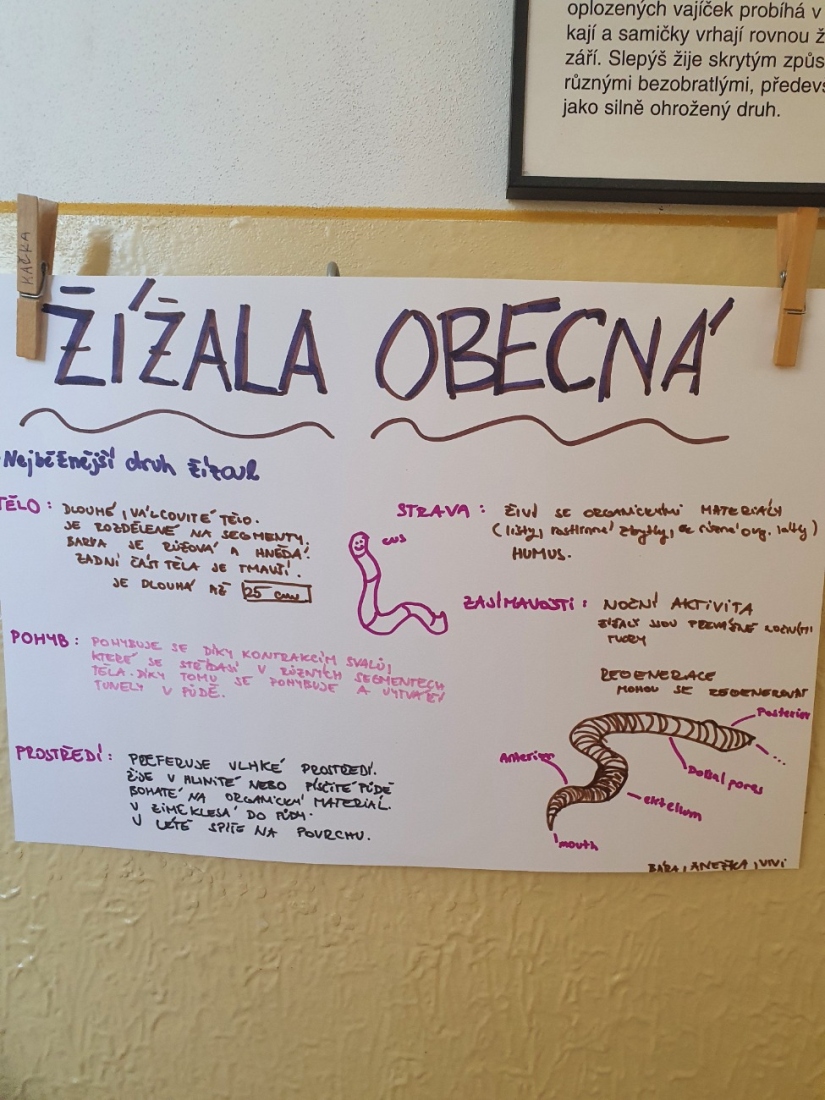 oplozených vajíček probíhá v
kají a samičky vrhají rovnou ž
září. Slepýš žije skrytým způs
různými bezobratlými, předevs
jako silně ohrožený druh.
KAČKA
ŽÍŽALA OBECNÁ
Nejběžnější druh žížal
TĚLO:
DLOUHÉ, VÁLCOVITÉ TĚLO.
JE ROZDĚLENÉ NA SEGMENTY.
BARVA JE RŮŽOVÁ A HNĚDÁ.
ZADNÍ ČÁST TĚLA JE TMAVŠÍ.
JE DLOUHÁ AŽ 25 cm
POHYB:
POHYBUJE SE DÍKY KONTRAKCÍM SVALŮ,
KTERÉ SE STŘÍDAJÍ V RŮZNÝCH SEGMENTECH
TĚLA. DÍKY TOMU SE POHYBUJE A VYTVÁŘÍ
TUNELY V PŮDĚ.
PROSTŘEDÍ:
PREFERUJE VLHKÉ PROSTŘEDÍ.
ŽIJE V HLINITÉ NEBO PÍSČITÉ PŮDĚ
BOHATÉ NA ORGANICKÝ MATERIÁL.
V ZIMĚ KLESÁ DO PŮDY.
V LÉTĚ SPÍŠE NA POVRCHU.
STRAVA:
ŽIVÍ SE ORGANICKÝMI MATERIÁLY
(listy, rostlinné zbytky, různé org. látky)
HUMUS.
ZAJÍMAVOSTI:
NOČNÍ AKTIVITA
ŽÍŽALY JSOU PŘEVÁŽNĚ NOČNÍ
TVORY
REGENERACE
MOHOU SE REGENEROVAT
Posterior
Anterior
mouth
BÁRA, ANEŽKA, VIVI